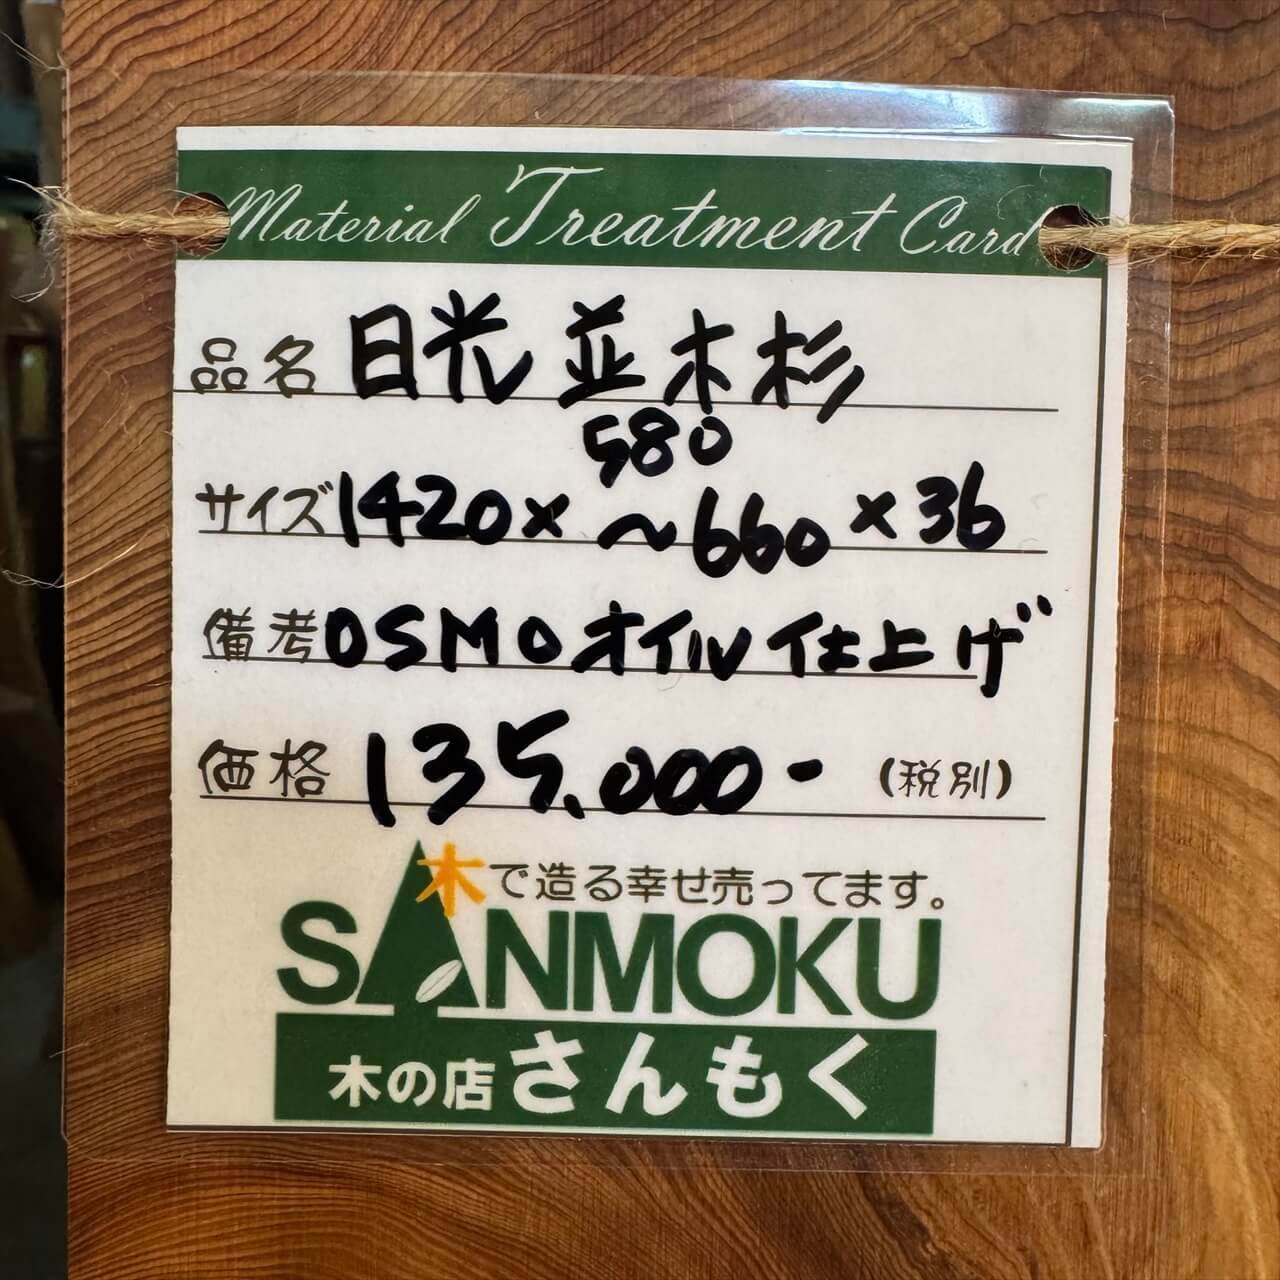 Material Treatment Card
品名 日光並木杉
580
サイズ 1420×～660×36
備考 OSMOオイル仕上げ
価格 135.000- (税別)
木で造る幸せ売ってます。
SANMOKU
木の店 さんもく